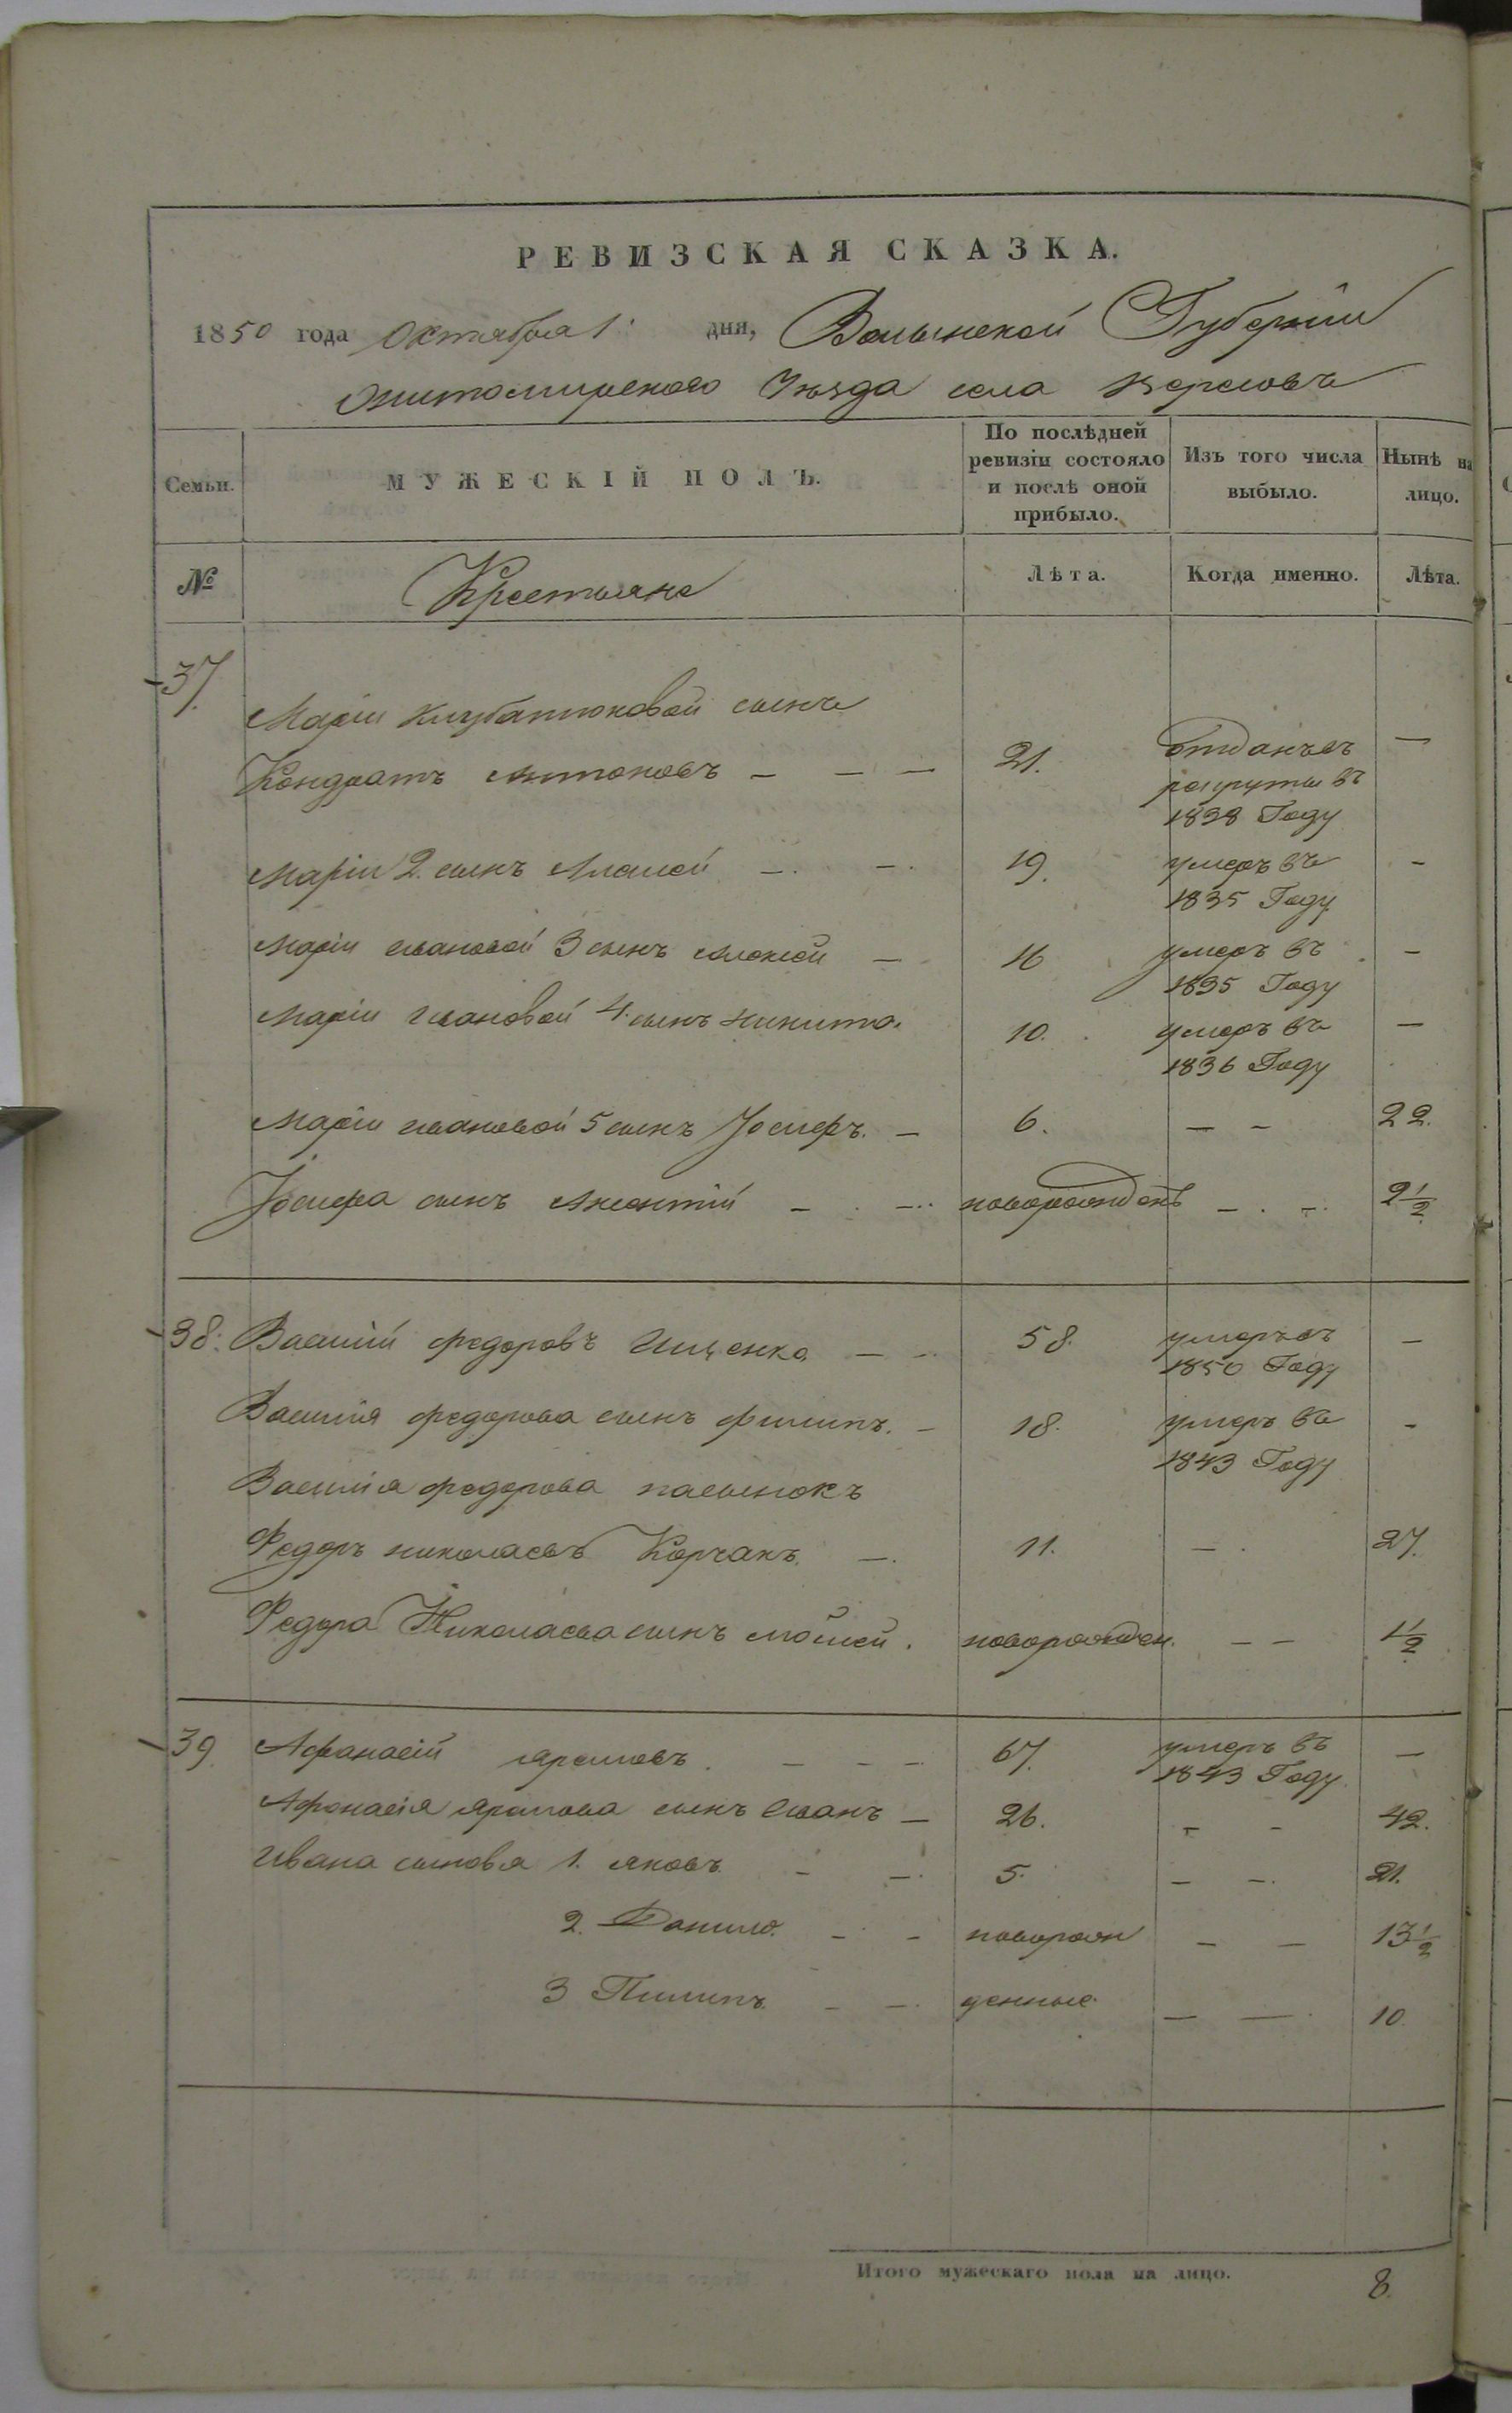 РЕВИЗСКАЯ СКАЗКА.
1850 года Октября 1. дня, Волынской Губерніи
Житомирского Уѣзда села
Семьи. МУЖЕСКІЙ ПОЛЪ. По послѣдней ревизіи состояло и послѣ оной прибыло. Изъ того числа выбыло. Нынѣ на лицо.
№ Крестьяне Лѣта. Когда именно. Лѣта.
37.
Маріи сынъ
Кондратъ Антоновъ — — — 21. отданъ въ —
рекруты въ
1838 Году
Маріи 2. сынъ —. —. 19. умеръ въ —
1835 Году
Маріи Ивановой 3 сынъ Алексей — 16 умеръ въ —
1835 Году
Маріи Ивановой 4. сынъ Никита. 10. умеръ въ —
1836 Году
Маріи Ивановой 5 сынъ Іосифъ. — 6. — — 22.
Іосифа сынъ — — новорожденъ — . —. 2 1/2
38. Василій Федоровъ Ищенко — — 58. умеръ въ —
1850 Году
Василія Федорова сынъ Филипъ. — 18. умеръ въ —
1843 Году
Василія Федорова пасынокъ
Федоръ Николаевъ Корчакъ. —. 11. — . 27.
Федора Николаева сынъ Мойсей. новорожден. — — 1 1/2
39. Афанасій Яремовъ. — — — 67. умеръ въ —
1843 Году.
Афанасія Яремова сынъ Иванъ — 26. — — 42.
Ивана сыновя 1. Яковъ — —. 5. — —. 21.
2. Данило. — — новорож — — 13 1/2
3 Пилипъ — —. денные. — —. 10.
Итого мужескаго пола на лицо. 8.